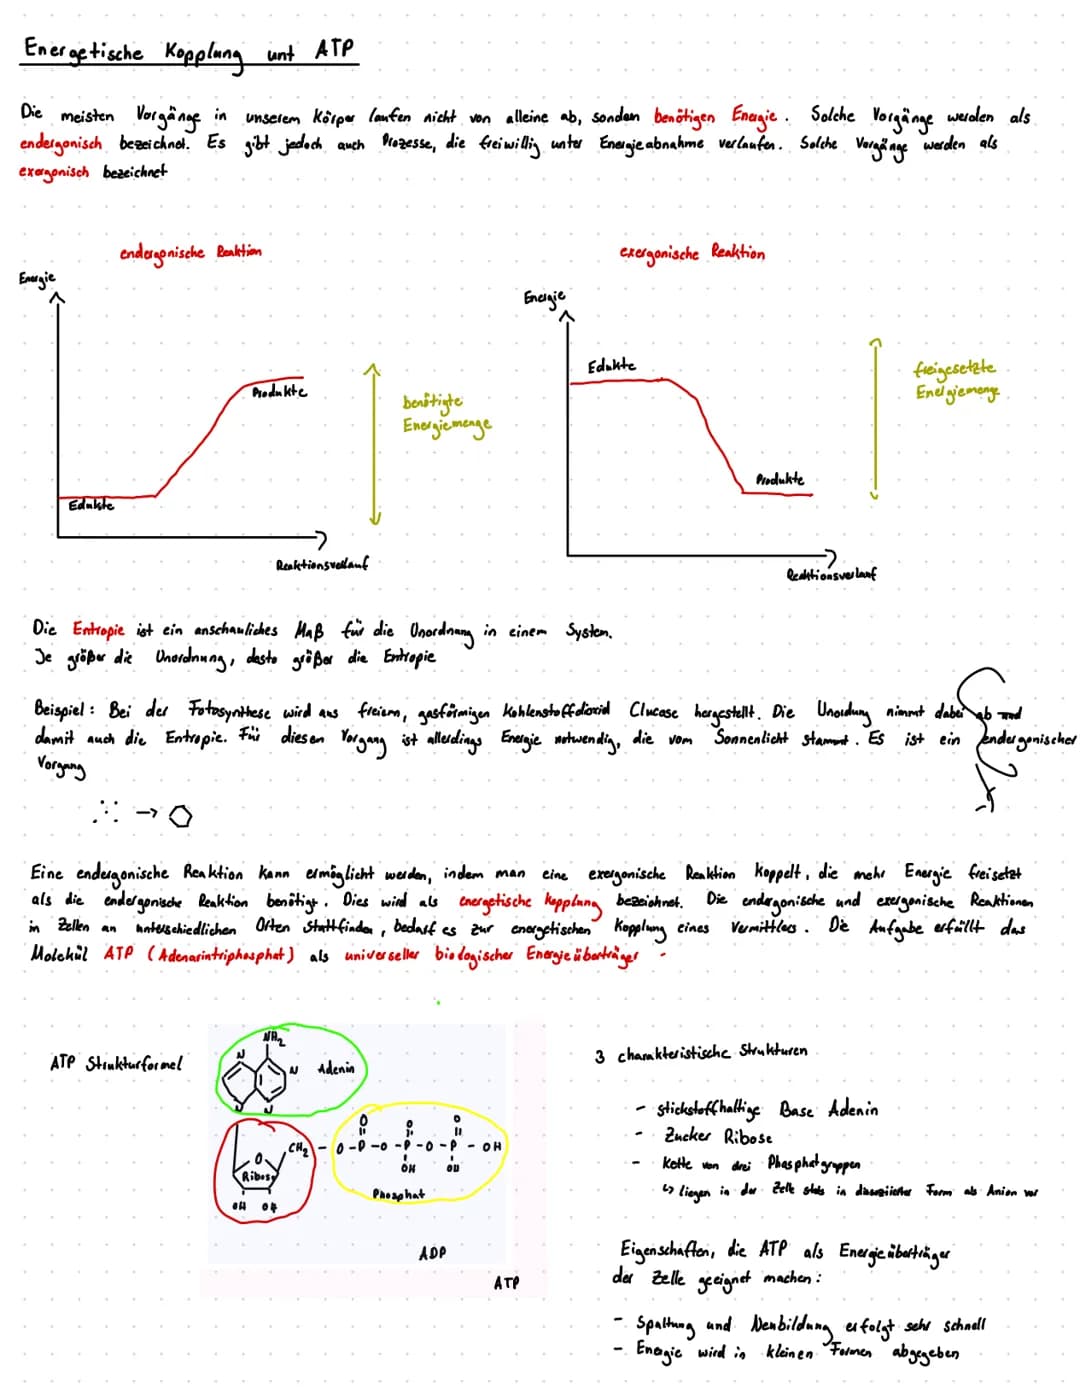 Energetische Kopplung unt ATP
Die meisten Vorgänge in unserem Körper laufen nicht von alleine ab, sondern benötigen Energie. Solche Vorgänge werden als
endergonisch bezeichnet. Es gibt jedoch auch Prozesse, die freiwillig unter Energieabnahme verlaufen. Solche Vorgänge werden als
exergonisch bezeichnet
endergonische Reaktion
exergonische Reaktion
Energie
Energie
Edukte
freigesetzte
Energiemenge
Produkte
benötigte
Energiemenge
Produkte
Edukte
Reaktionsverlauf
Reaktionsverlauf
Die Entropie ist ein anschauliches Maß für die Unordnung in einem System.
Je größer die Unordnung, desto größer die Entropie
Beispiel: Bei der Fotosynthese wird aus freiem, gasförmigen Kohlenstoffdioxid Glucose hergestellt. Die Unordung nimmt dabei ab und
damit auch die Entropie. Für diesen Vorgang ist allerdings Energie notwendig, die vom Sonnenlicht stammt. Es ist ein endergonischer
Vorgang
Eine endergonische Reaktion kann ermöglicht werden, indem man eine exergonische Reaktion koppelt, die mehr Energie freisetzt
als die endergonische Reaktion benötigt. Dies wird als energetische kopplung bezeichnet. Die endergonische und exergonische Reaktionen
in Zellen an unterschiedlichen Orten stattfinden, bedarf es zur energetischen Kopplung eines Vermittlers. Die Aufgabe erfüllt das
Molekül ATP (Adenosintriphosphat) als universeller biologischer Energieüberträger
ATP Strukturformel
NH2
N
N
Adenin
N
N
O
O
O
CH2 - O - P - O - P - O - P - OH
OH
OH
O
Ribose
Phosphat
OH
OH
ADP
ATP
3 charakteristische Strukturen
- stickstoffhaltige Base Adenin
- Zucker Ribose
- Kette von drei Phosphatgruppen
↳ liegen in der Zelle stets in dissoziierter Form als Anion vor
Eigenschaften, die ATP als Energieüberträger
der Zelle geeignet machen:
- Spaltung und Neubildung erfolgt sehr schnell
- Energie wird in kleinen Formen abgegeben